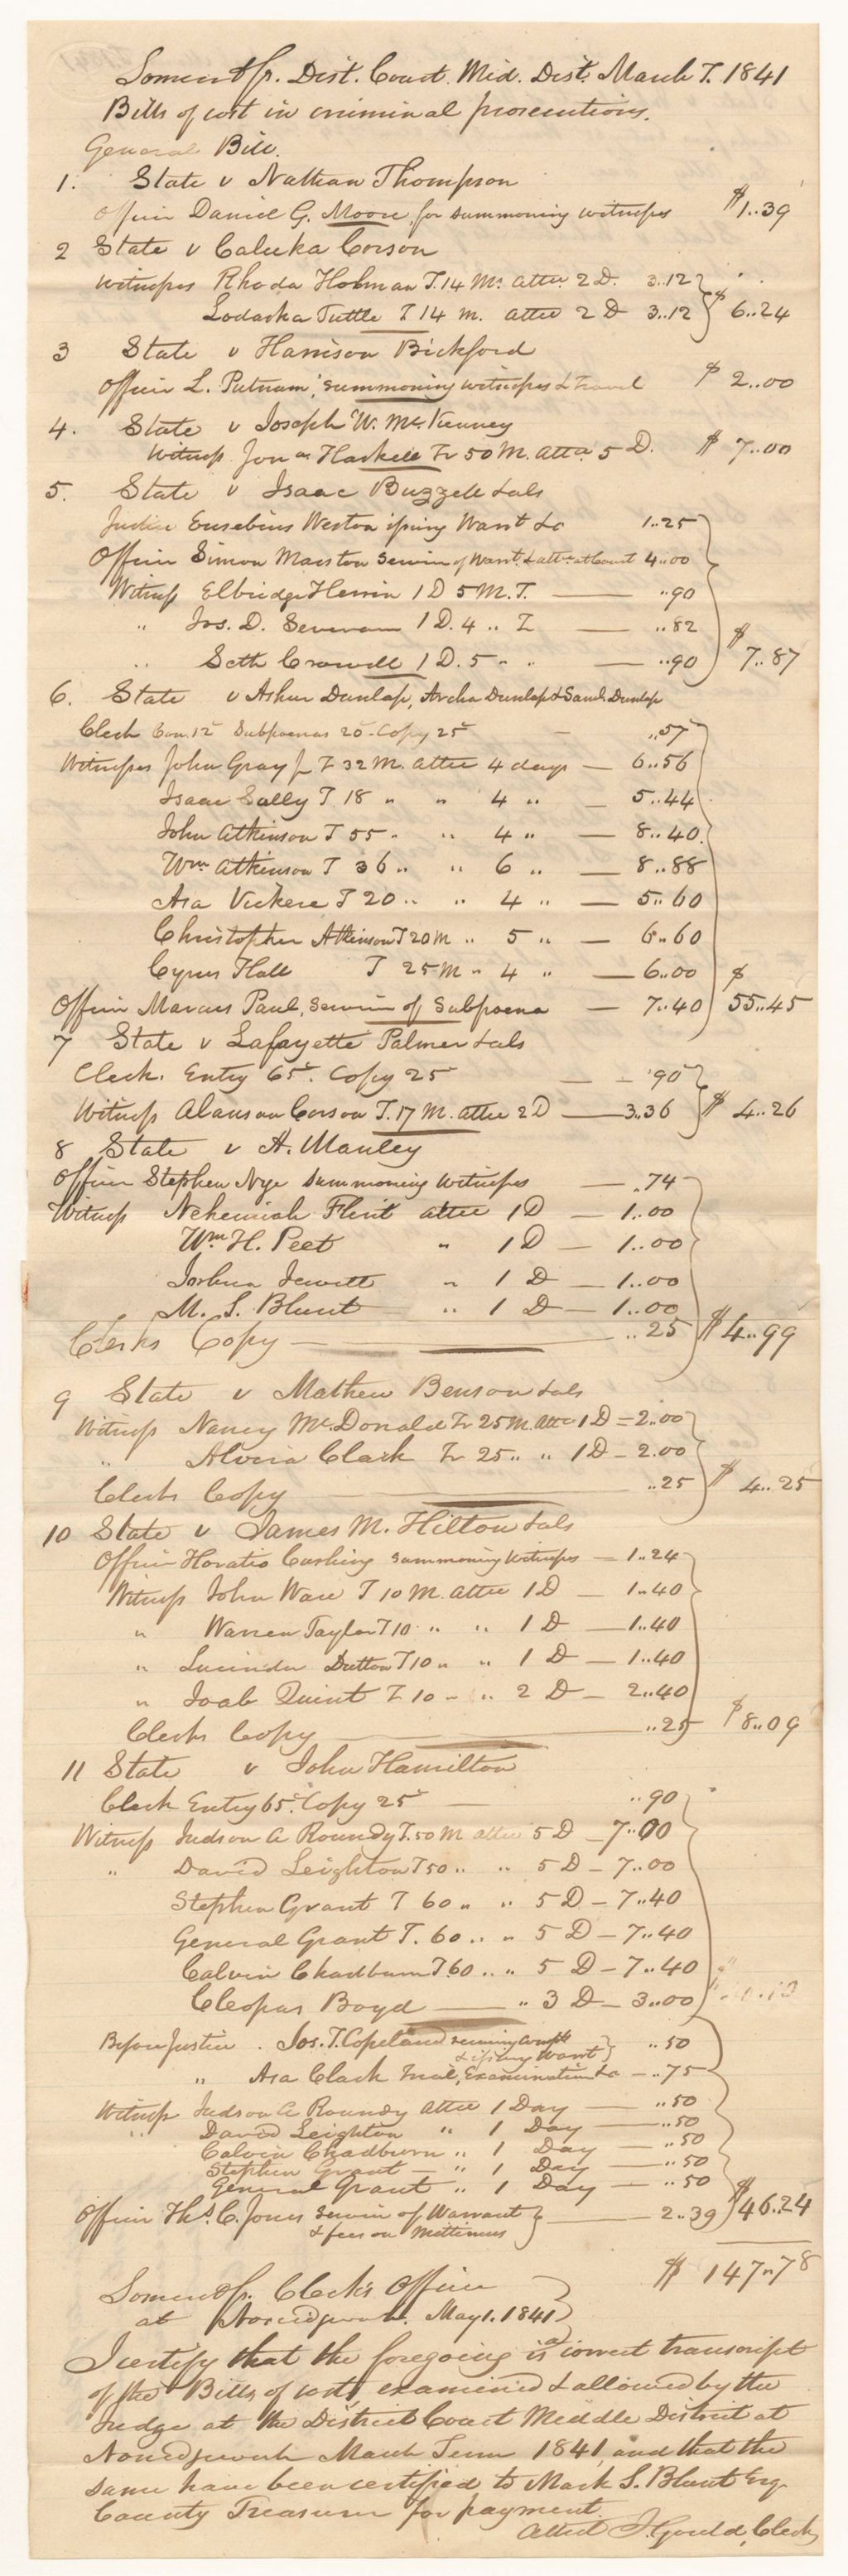 Somerset ss. Dist. Court. Mid. Dist. March T. 1841
Bills of cost in criminal prosecutions.
General Bill.
1. State v Nathan Thompson
Officer Daniel G. Moore, for summoning witnesses $1..39
2 State v Caluka Corson
Witnesses Rhoda Holman T. 14 Ms. atte. 2 D. 3..12
Lodaska Tuttle T 14 m. atte 2 D 3..12 $6..24
3 State v Harrison Bickford
Officer L. Putnam, summoning witnesses & travel $2..00
4. State v Joseph W. McKenney
Witness Jona Haskell Tr 50 M. atte 5 D. $7..00
5. State v Isaac Buzzell & als
Justice Eusebius Weston issuing Warrt &c 1..25
Officer Simon Marston service of Warrt. & atte at Court 4..00
Witness Elbridge Herrin 1 D 5 M. T. ..90
" Jos. D. Severance 1 D. 4 .. T ..82
.. Seth Crowell 1 D. 5 .. .. ..90 $7..87
6. State v Arthur Dunlap, Archa Dunlap & Saml Dunlap
Clerk Con. 12 Subpoenas 20 Copy 25 ..57
Witnesses John Gray Jr T 32 M. atte 4 days 6..56
Isaac Sally T 18 " " 4 .. 5..44
John Atkinson T 55 . .. 4 .. 8..40
Wm Atkinson T 36 .. .. 6 .. 8..88
Asa Vickere T 20 .. .. 4 .. 5..60
Christopher Atkinson T 20 M .. 5 .. 6..60
Cyrus Hall T 25 M .. 4 .. 6..00
Officer Marcus Paul, Service of Subpoena 7..40 $55..45
7 State v Lafayette Palmer & als
Clerk. Entry 65. Copy 25 ..90
Witness Alanson Corson T. 17 M. atte 2 D 3.36 $4..26
8 State v A. Manley
Officer Stephen Nye summoning Witnesses .74
Witness Nehemiah Flint atte 1 D 1..00
Wm H. Peet " 1 D 1..00
Joshua Jewett " 1 D 1..00
M. S. Blunt .. 1 D 1..00
Clerks Copy ..25 $4..99
9 State v Mathew Benson & als
Witness Nancy McDonald Tr 25 M. atte 1 D = 2..00
.. Alvira Clark Tr 25 .. .. 1 D - 2.00
Clerks Copy ..25 $4..25
10 State v James M. Hilton & als
Officer Horatio Cushing summoning Witnesses 1..24
Witness John Ware T 10 M. atte 1 D 1..40
" Warren Taylor T 10 .. .. 1 D 1..40
" Lucinda Dutton T 10 .. .. 1 D 1..40
" Joab Quint T 10 .. .. 2 D 2..40
Clerks Copy ..25 $8..09
11 State v John Hamilton
Clerk Entry 65. Copy 25 ..90
Witness Judson A Roundy T. 50 M atte 5 D 7..00
" David Leighton T 50 .. .. 5 D - 7..00
Stephen Grant T 60 .. .. 5 D - 7..40
General Grant T. 60 .. .. 5 D - 7..40
Calvin Chadburn T 60 .. .. 5 D - 7..40
Cleopas Boyd .. 3 D - 3..00
Before Justice . Jos. T. Copeland receiving Complt & issuing Warrt ..50
" Asa Clark Trial, Examination &c - ..75
Witness Judson A Roundy atte 1 Day ..50
" David Leighton " 1 Day ..50
Calvin Chadburn .. 1 Day ..50
Stephen Grant " 1 Day ..50
General Grant .. 1 Day ..50
Officer Ths. C. Jones service of Warrant & fees on Mittimus 2..39 $46.24
$147..78
Somerset ss. Clerks Office
at Norridgewock. May 1. 1841
I certify that the foregoing is a correct transcript
of the Bills of cost, examined & allowed by the
Judge at the District Court Middle District at
Norridgewock March Term 1841, and that the
same have been certified to Mark S. Blunt Esq
County Treasurer for payment.
Attest J. Gould, Clerk